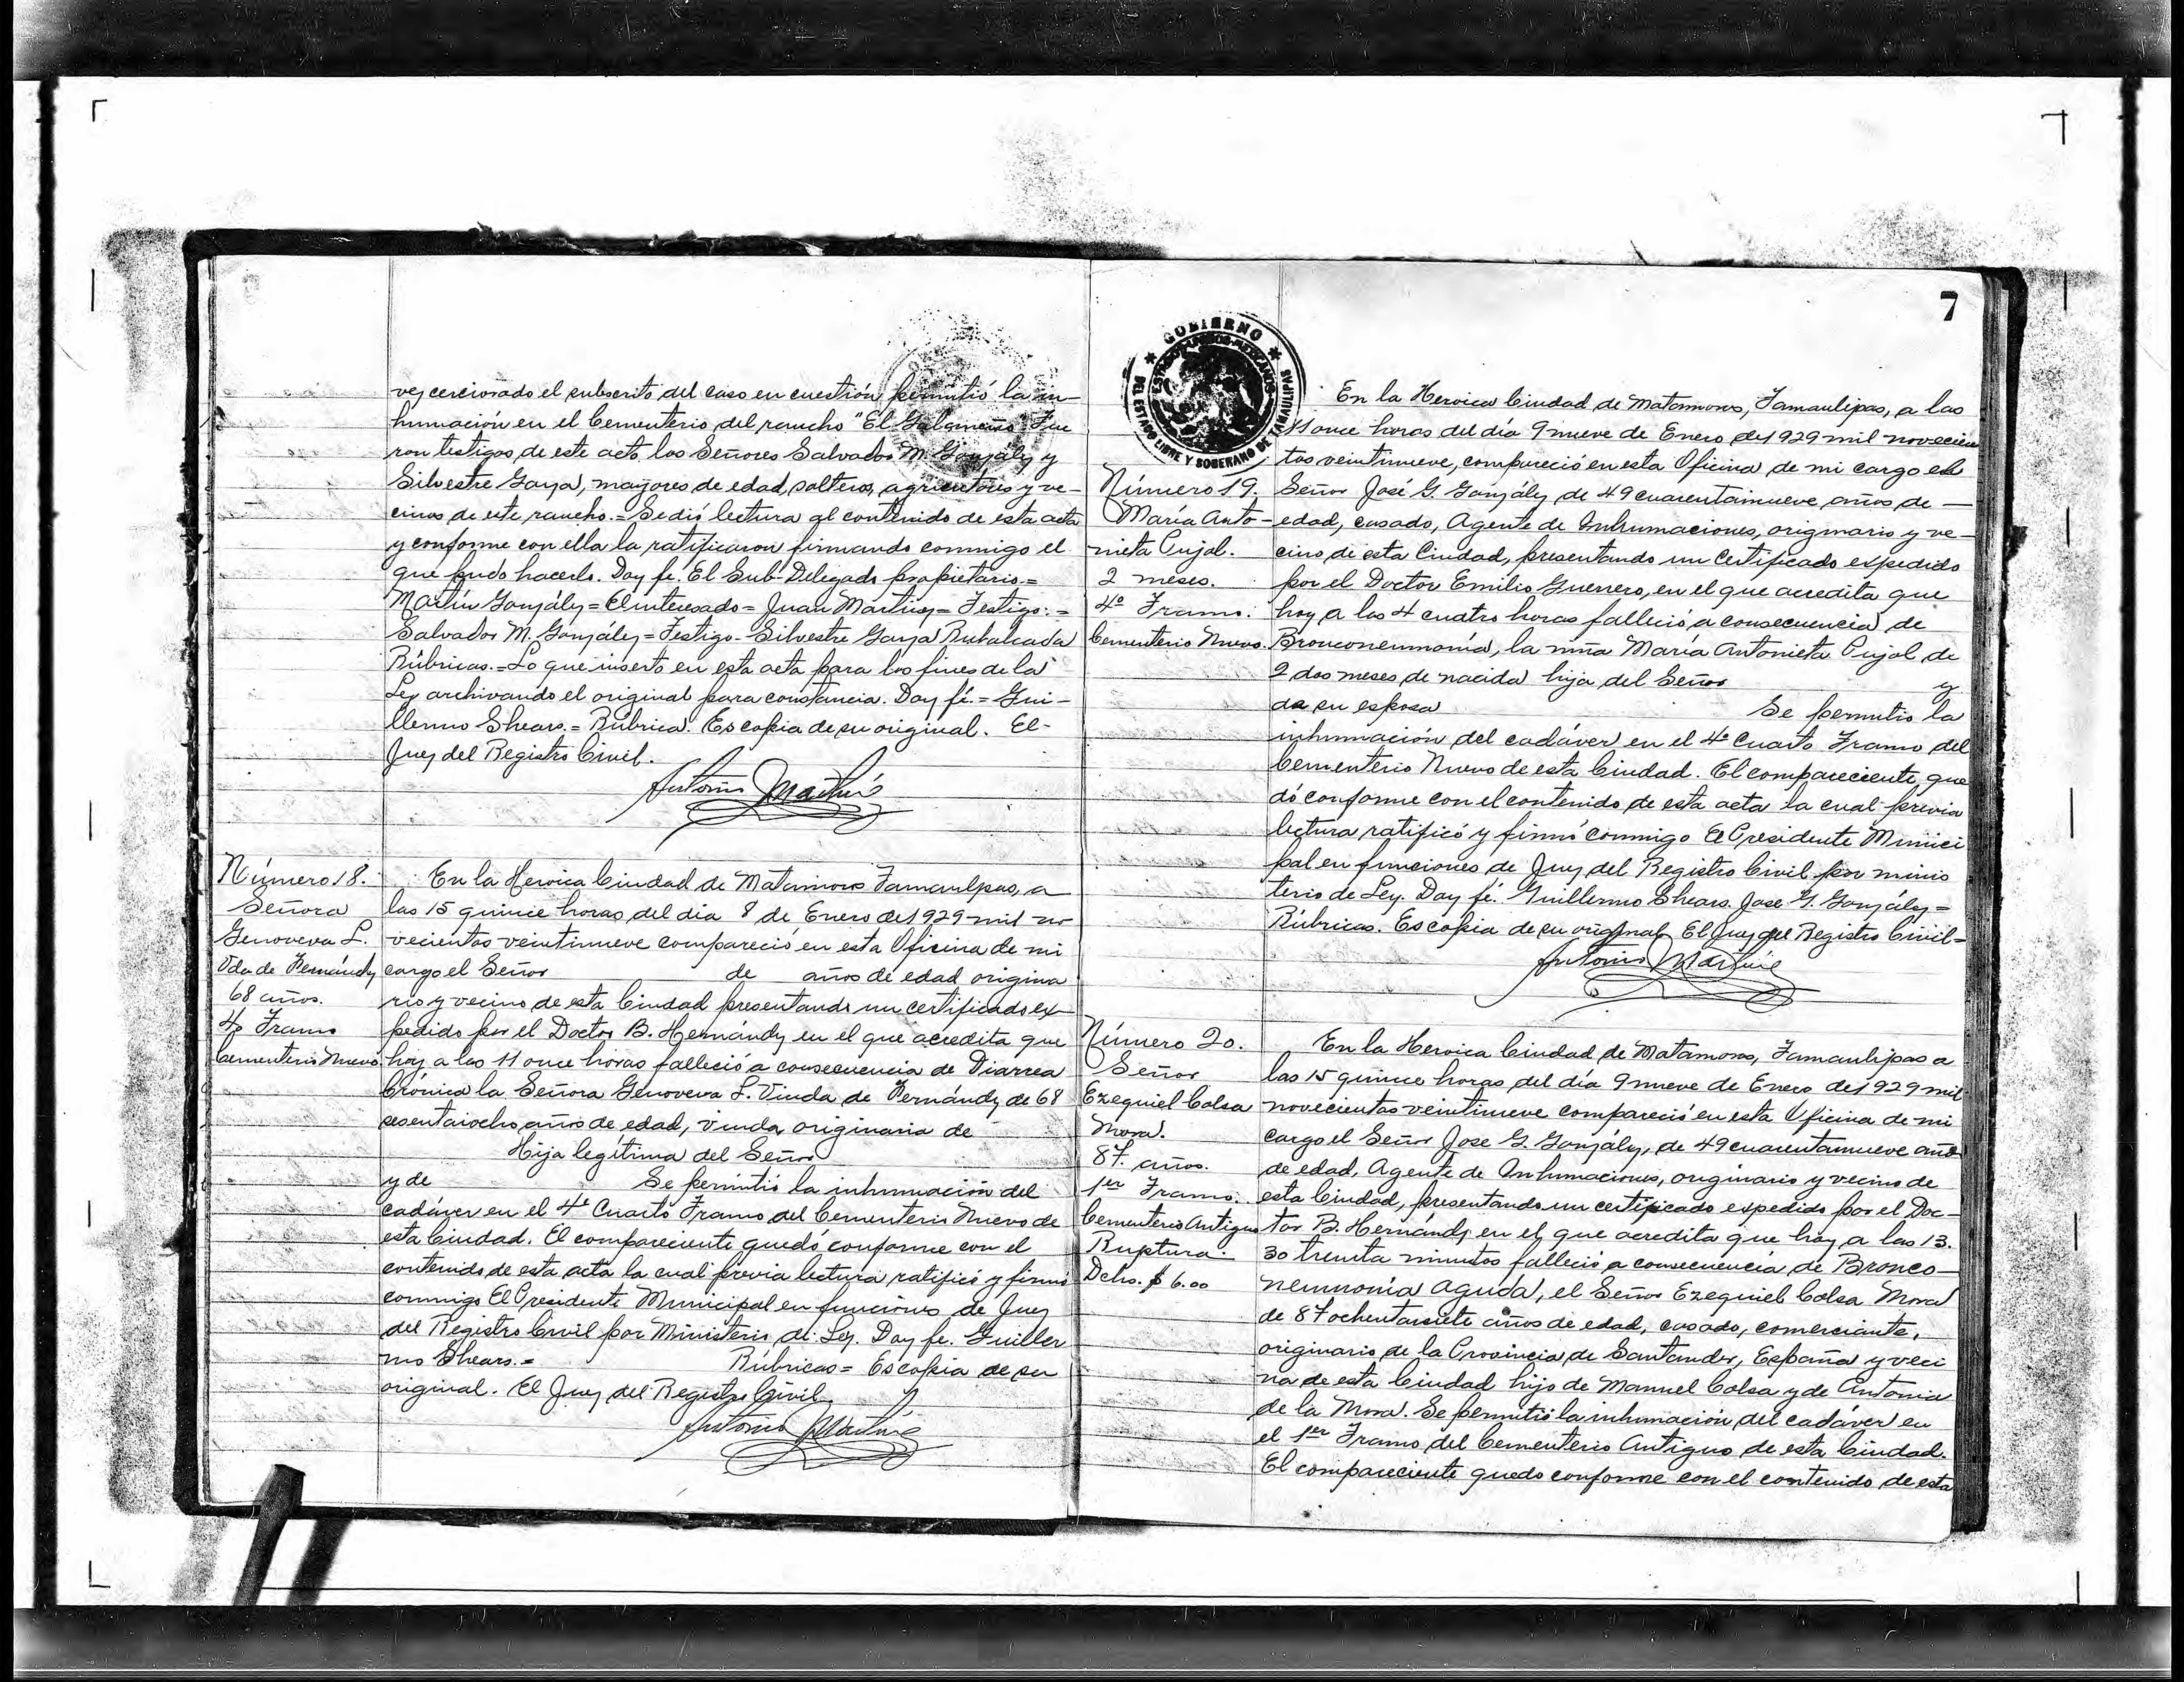 vez cerciorado el subscrito del caso en cuestión permitió la in-
humación en el Cementerio del rancho "El Galaneño" Fue
ron testigos de este acto los Señores Salvador M. González y
Silvestre Garza, mayores de edad, solteros, agricultores y ve-
cinos de este rancho.= Se dió lectura al contenido de esta acta
y conforme con ella la ratificaron firmando conmigo el
que pudo hacerlo. Doy fe. El Sub-Delegado propietario.=
Martín González= El interesado= Juan Martínez= Testigo.=
Salvador M. González= Testigo- Silvestre Garza Rubalcada
Rúbricas.= Lo que inserto en esta acta para los fines de la
Ley archivando el original para constancia. Doy fé.= Gui-
llermo Shears.= Rúbrica. Es copia de su original. El-
Juez del Registro Civil.
Antonio Martínez
Número 18.
Señora
Genoveva L.
Vda de Fernández
68 años.
4o Tramo
Cementerio Nuevo
En la Heroica Ciudad de Matamoros Tamaulipas, a
las 15 quince horas del día 8 de Enero de 1929 mil no
vecientos veintinueve compareció en esta Oficina de mi
cargo el Señor de años de edad origina
rio y vecino de esta Ciudad presentando un certificado ex-
pedido por el Doctor B. Hernández en el que acredita que
hoy a las 11 once horas falleció a consecuencia de Diarrea
Crónica la Señora Genoveva L. Viuda de Fernández de 68
sesentaiocho años de edad, viuda, originaria de
Hija legítima del Señor
y de Se permitió la inhumación del
cadáver en el 4o Cuarto Tramo del Cementerio Nuevo de
esta Ciudad. El compareciente quedó conforme con el
contenido de esta acta la cual previa lectura ratificó y firmó
conmigo El Presidente Municipal en funciones de Juez
del Registro Civil por Ministerio de Ley. Doy fe. Guiller
mo Shears.= Rúbricas= Es copia de su
original. El Juez del Registro Civil
Antonio Martínez
7
GOBIERNO
DEL ESTADO LIBRE Y SOBERANO DE TAMAULIPAS
Número 19.
María Anto-
nieta Pujol.
2 meses.
4o Tramo.
Cementerio Nuevo.
En la Heroica Ciudad de Matamoros, Tamaulipas, a las
11 once horas del día 9 nueve de Enero de 1929 mil novecien
tos veintinueve, compareció en esta Oficina de mi cargo el
Señor José G. González de 49 cuarentainueve años de -
edad, casado, Agente de Inhumaciones, originario y ve-
cino de esta Ciudad, presentando un Certificado expedido
por el Doctor Emilio Guerrero, en el que acredita que
hoy a las 4 cuatro horas falleció a consecuencia de
Bronconeumonía, la niña María Antonieta Pujol de
2 dos meses de nacida hija del Señor y
de su esposa Se permitio la
inhumación del cadáver en el 4o Cuarto Tramo del
Cementerio Nuevo de esta Ciudad. El compareciente que
dó conforme con el contenido de esta acta la cual previa
lectura ratificó y firmó conmigo El Presidente Munici
pal en funciones de Juez del Registro Civil por minis
terio de Ley. Doy fé. Guillermo Shears. Jose G. González=
Rúbricas. Es copia de su original El Juez del Registro Civil=
Antonio Martínez
Número 20.
Señor
Ezequiel Colsa
Mora.
87. años.
1er Tramo.
Cementerio Antiguo
Ruptura.
Dcho. $ 6.00
En la Heroica Ciudad de Matamoros, Tamaulipas a
las 15 quince horas del día 9 nueve de Enero de 1929 mil
novecientos veintinueve compareció en esta Oficina de mi
cargo el Señor Jose G. González, de 49 cuarentainueve años
de edad, Agente de Inhumaciones, originario y vecino de
esta Ciudad, presentando un certificado expedido por el Doc-
tor B. Hernández en el que acredita que hoy a las 13.
30 treinta minutos falleció a consecuencia de Bronco-
neumonía aguda, el Señor Ezequiel Colsa Mora
de 87 ochentaisiete años de edad, casado, comerciante,
originario de la Provincia de Santander, España y veci
no de esta Ciudad hijo de Manuel Colsa y de Antonia
de la Mora. Se permitió la inhumación del cadáver en
el 1er Tramo del Cementerio Antiguo de esta Ciudad.
El compareciente quedo conforme con el contenido de esta